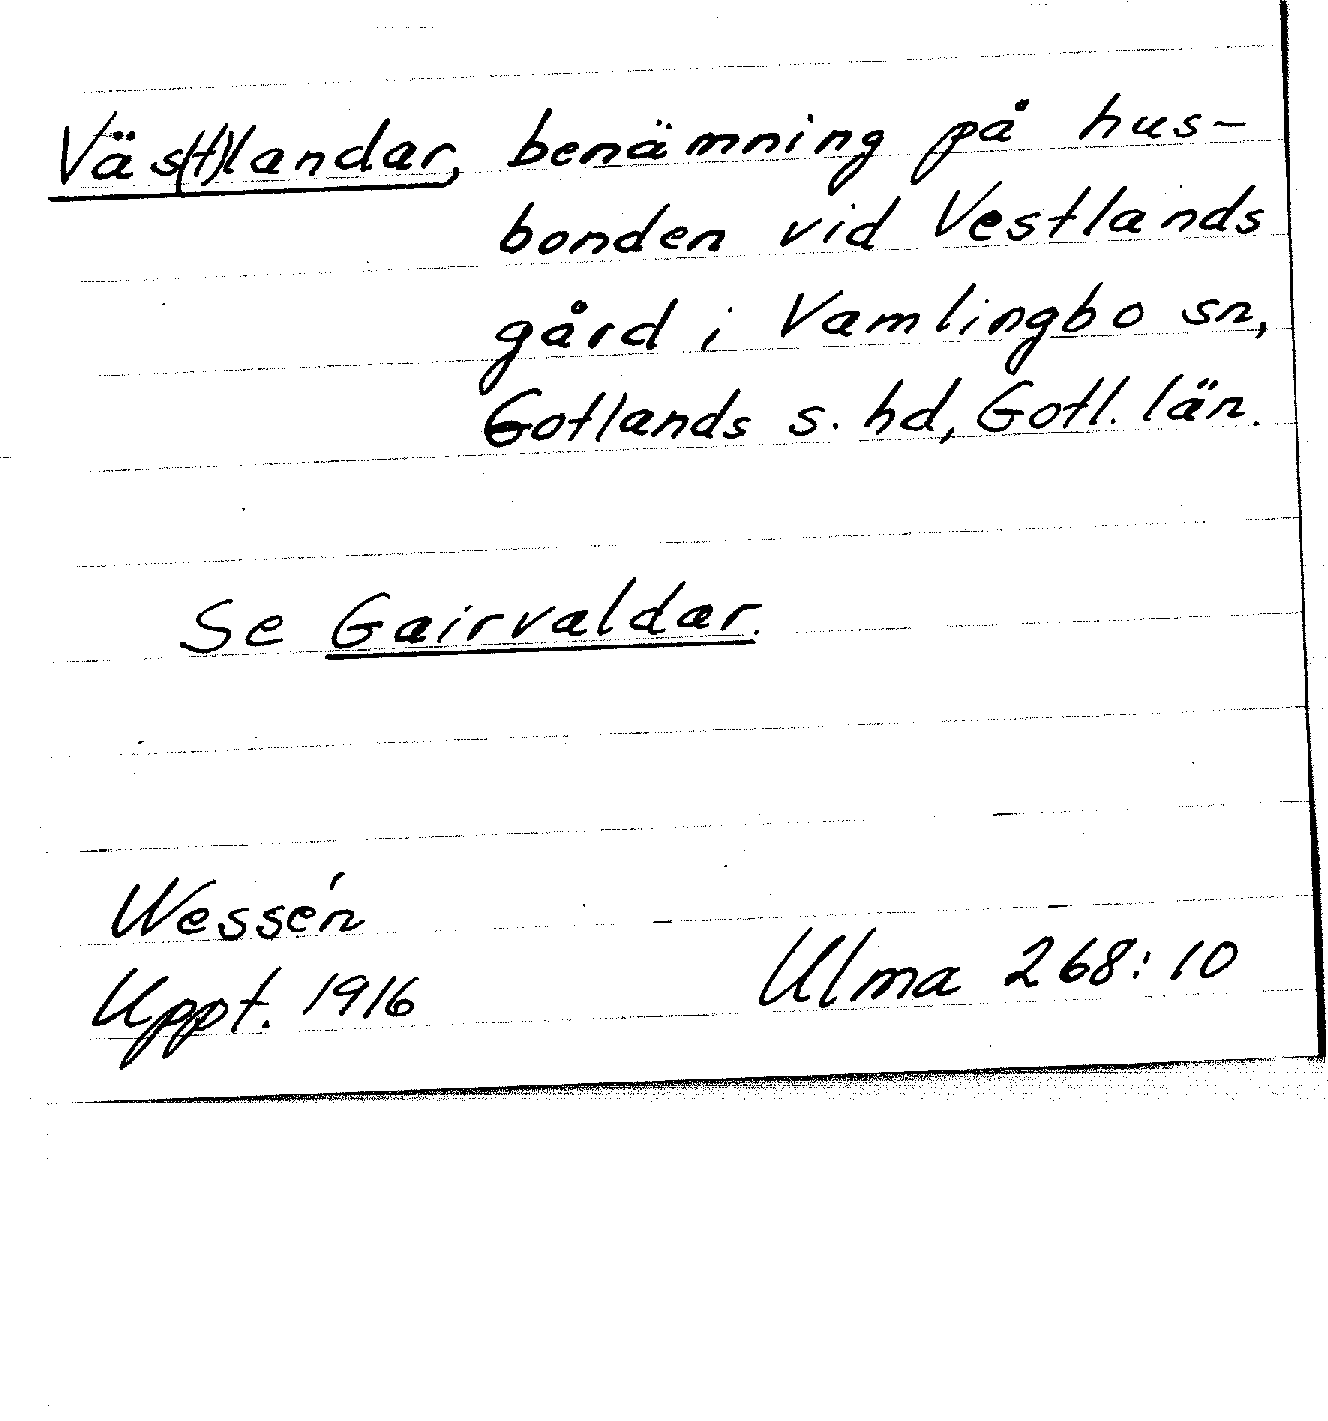 Väs(t)landar, benämning på hus-
bonden vid Vestlands
gård i Vamlingbo sn,
Gotlands s. hd, Gotl. län.
Se Gairvaldar.
Wessén
Uppt. 1916
Ulma 268:10